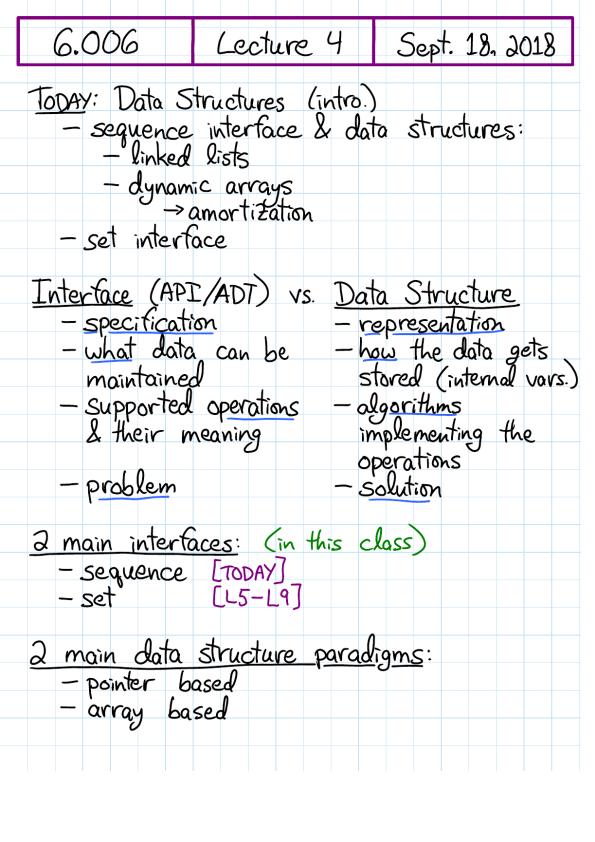 6.006 Lecture 4 Sept. 18, 2018
TODAY: Data Structures (intro.)
- sequence interface & data structures:
- linked lists
- dynamic arrays
→ amortization
- set interface
Interface (API/ADT) vs. Data Structure
- specification - representation
- what data can be - how the data gets
maintained stored (internal vars.)
- supported operations - algorithms
& their meaning implementing the
operations
- problem - solution
2 main interfaces: (in this class)
- sequence [TODAY]
- set [L5-L9]
2 main data structure paradigms:
- pointer based
- array based